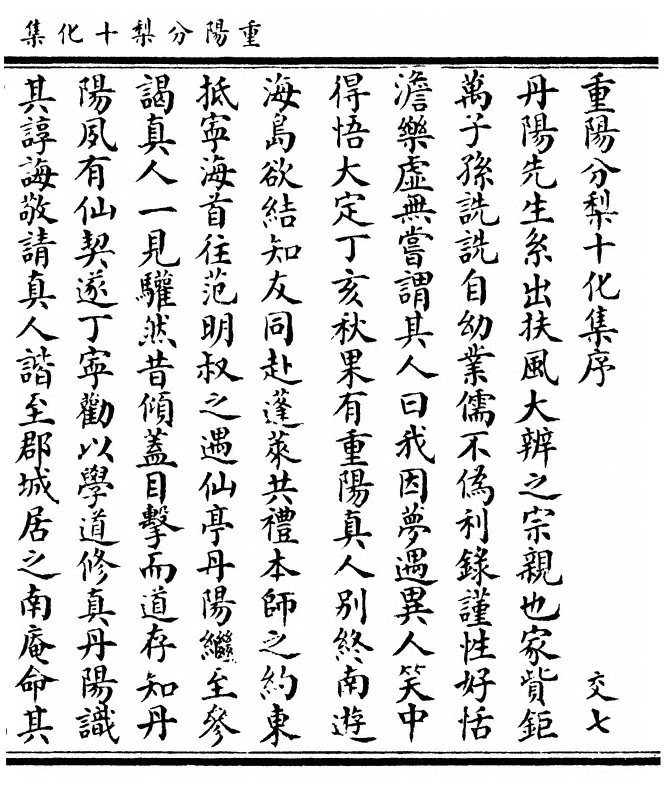 重陽分梨十化集
重陽分梨十化集序 交七
丹陽先生系出扶風大辨之宗親也家貲鉅
萬子孫詵詵自幼業儒不僞利錄謹性好恬
澹樂虛無嘗謂其人曰我因夢遇異人笑中
得悟大定丁亥秋果有重陽真人別終南遊
海島欲結知友同赴蓬萊共禮本師之約東
抵寧海首往范明叔之遇仙亭丹陽繼至參
謁真人一見驩然昔傾蓋目擊而道存知丹
陽夙有仙契遂丁寧勸以學道修真丹陽識
其諄誨敬請真人諧至郡城居之南庵命其